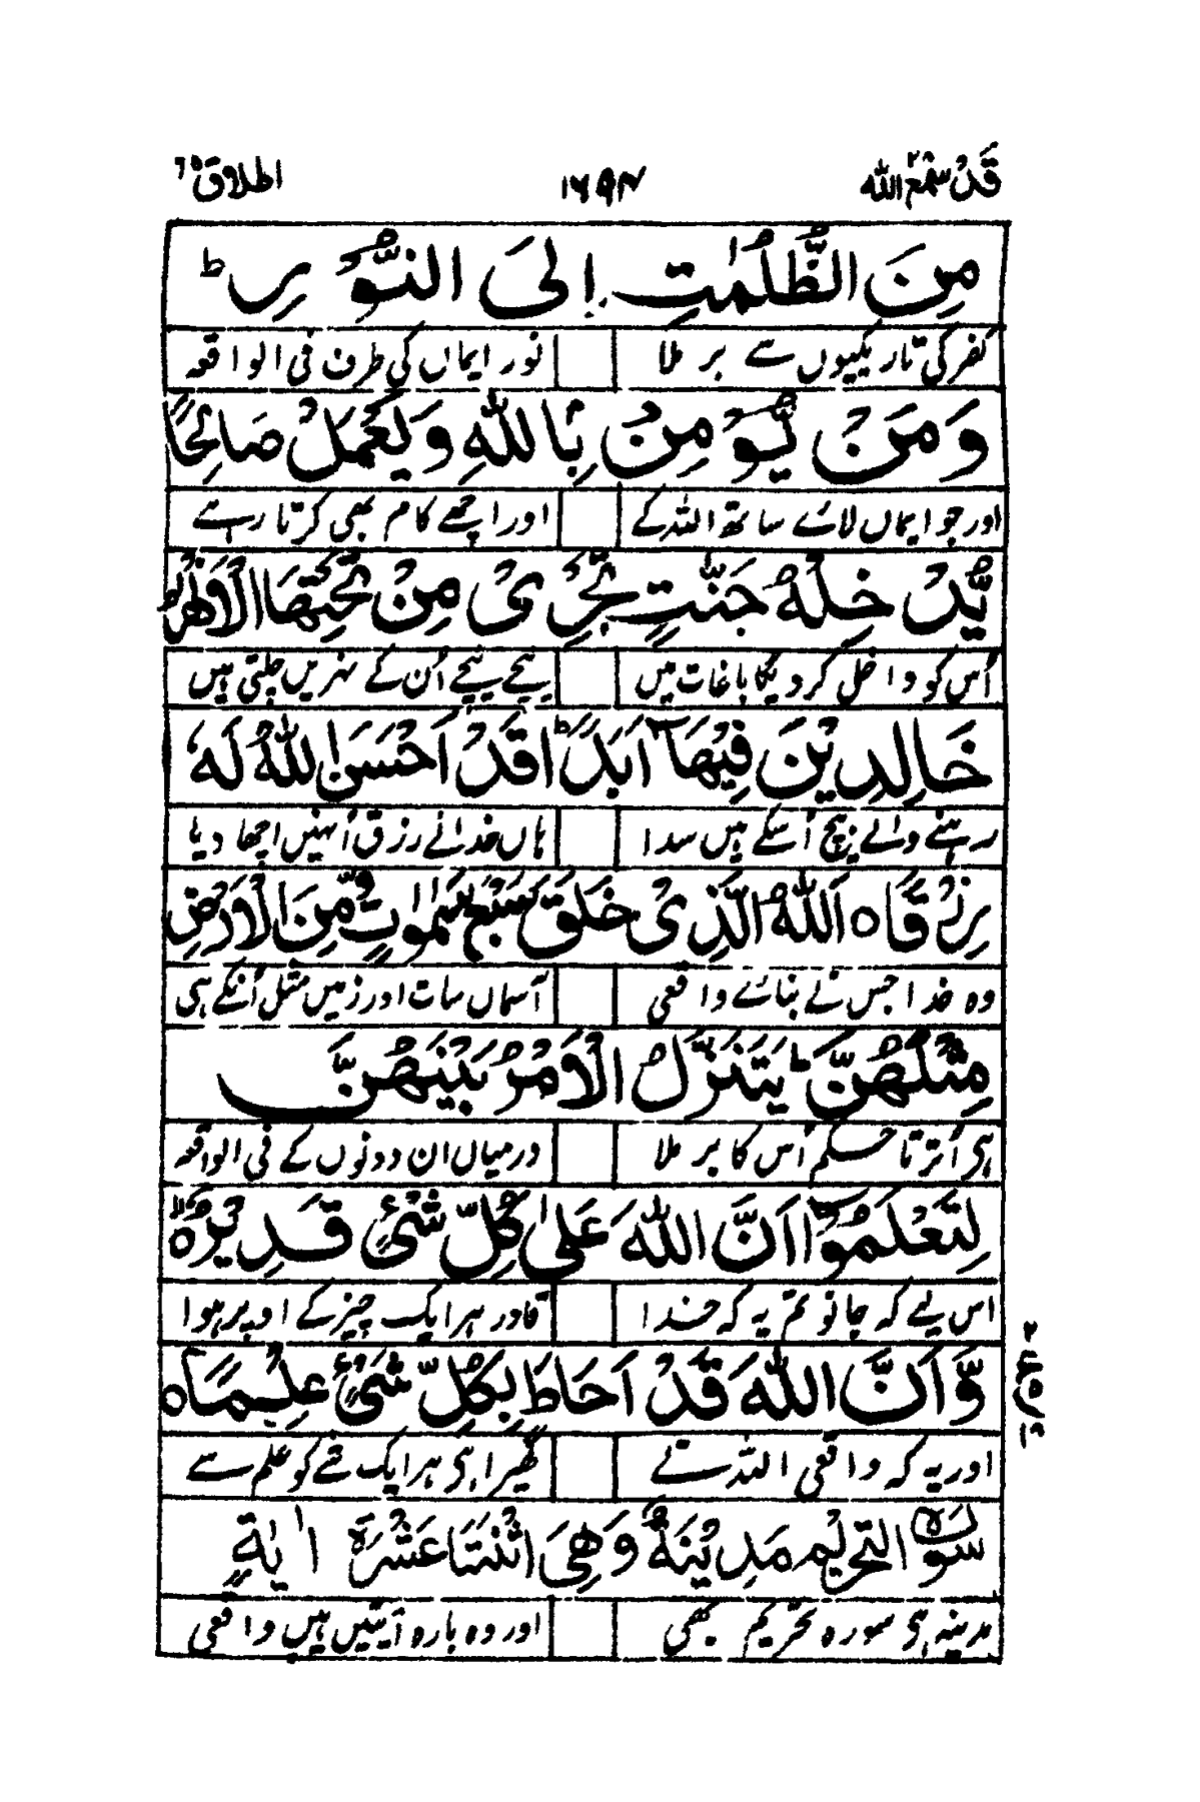 قَدْ سَمِعَ اللہ ۲۸ ۱۶۹۴ الطلاق ۶۵
مِنَ الظُّلُمٰتِ اِلَى النُّوْرِ ؕ
کفر کی تاریکیوں سے برملا نور ایماں کی طرف فی الواقعہ
وَمَنْ يُّؤْمِنْ بِاللّٰهِ وَيَعْمَلْ صَالِحًا
اور جو ایماں لائے ساتھ اللہ کے اور اچھے کام بھی کرتا رہے
يُّدْخِلْهُ جَنّٰتٍ تَجْرِىْ مِنْ تَحْتِهَا الْاَنْهٰرُ
اُس کو داخل کر دیگا باغات میں نیچے نیچے اُن کے نہریں چلتی ہیں
خَالِدِيْنَ فِيْهَآ اَبَدًا ؕ قَدْ اَحْسَنَ اللّٰهُ لَهٗ
رہنے والے بیچ اُسکے ہیں سدا ہاں خدا نے رزق اُنہیں اچھا دیا
رِزْقًا ہ اَللّٰهُ الَّذِىْ خَلَقَ سَبْعَ سَمٰوٰتٍ وَّمِنَ الْاَرْضِ
وہ خدا جس نے بنائے واقعی آسماں سات اور زمیں مثل اُنکے ہی
مِثْلَهُنَّ ؕ يَتَنَزَّلُ الْاَمْرُ بَيْنَهُنَّ
ہی اُترتا حکم اُس کا برملا درمیاں ان دونوں کے فی الواقعہ
لِتَعْلَمُوْٓا اَنَّ اللّٰهَ عَلٰى كُلِّ شَىْءٍ قَدِيْرٌ ہ
اس لیے کہ جانو تم یہ کہ خدا قادر ہر ایک چیز کے اوپر ہوا
وَّاَنَّ اللّٰهَ قَدْ اَحَاطَ بِكُلِّ شَىْءٍ عِلْمًا ہ
اور یہ کہ واقعی اللہ نے گھیرا ہی ہر ایک شے کو علم سے
سُوْرَةُ التَّحْرِيْمِ مَدِيْنَةٌ وَهِىَ اثْنَتَا عَشْرَةَ اٰيَةً
مدینہ ہی سورہ تحریم بھی اور وہ بارہ آیتیں ہیں واقعی